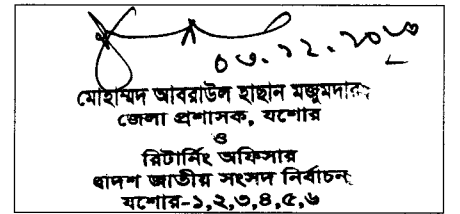 মোহাম্মদ আবরাউল হাছান মজুমদার
জেলা প্রশাসক, যশোর
ও
রিটার্নিং অফিসার
দ্বাদশ জাতীয় সংসদ নির্বাচন
যশোর-১,২,৩,৪,৫,৬